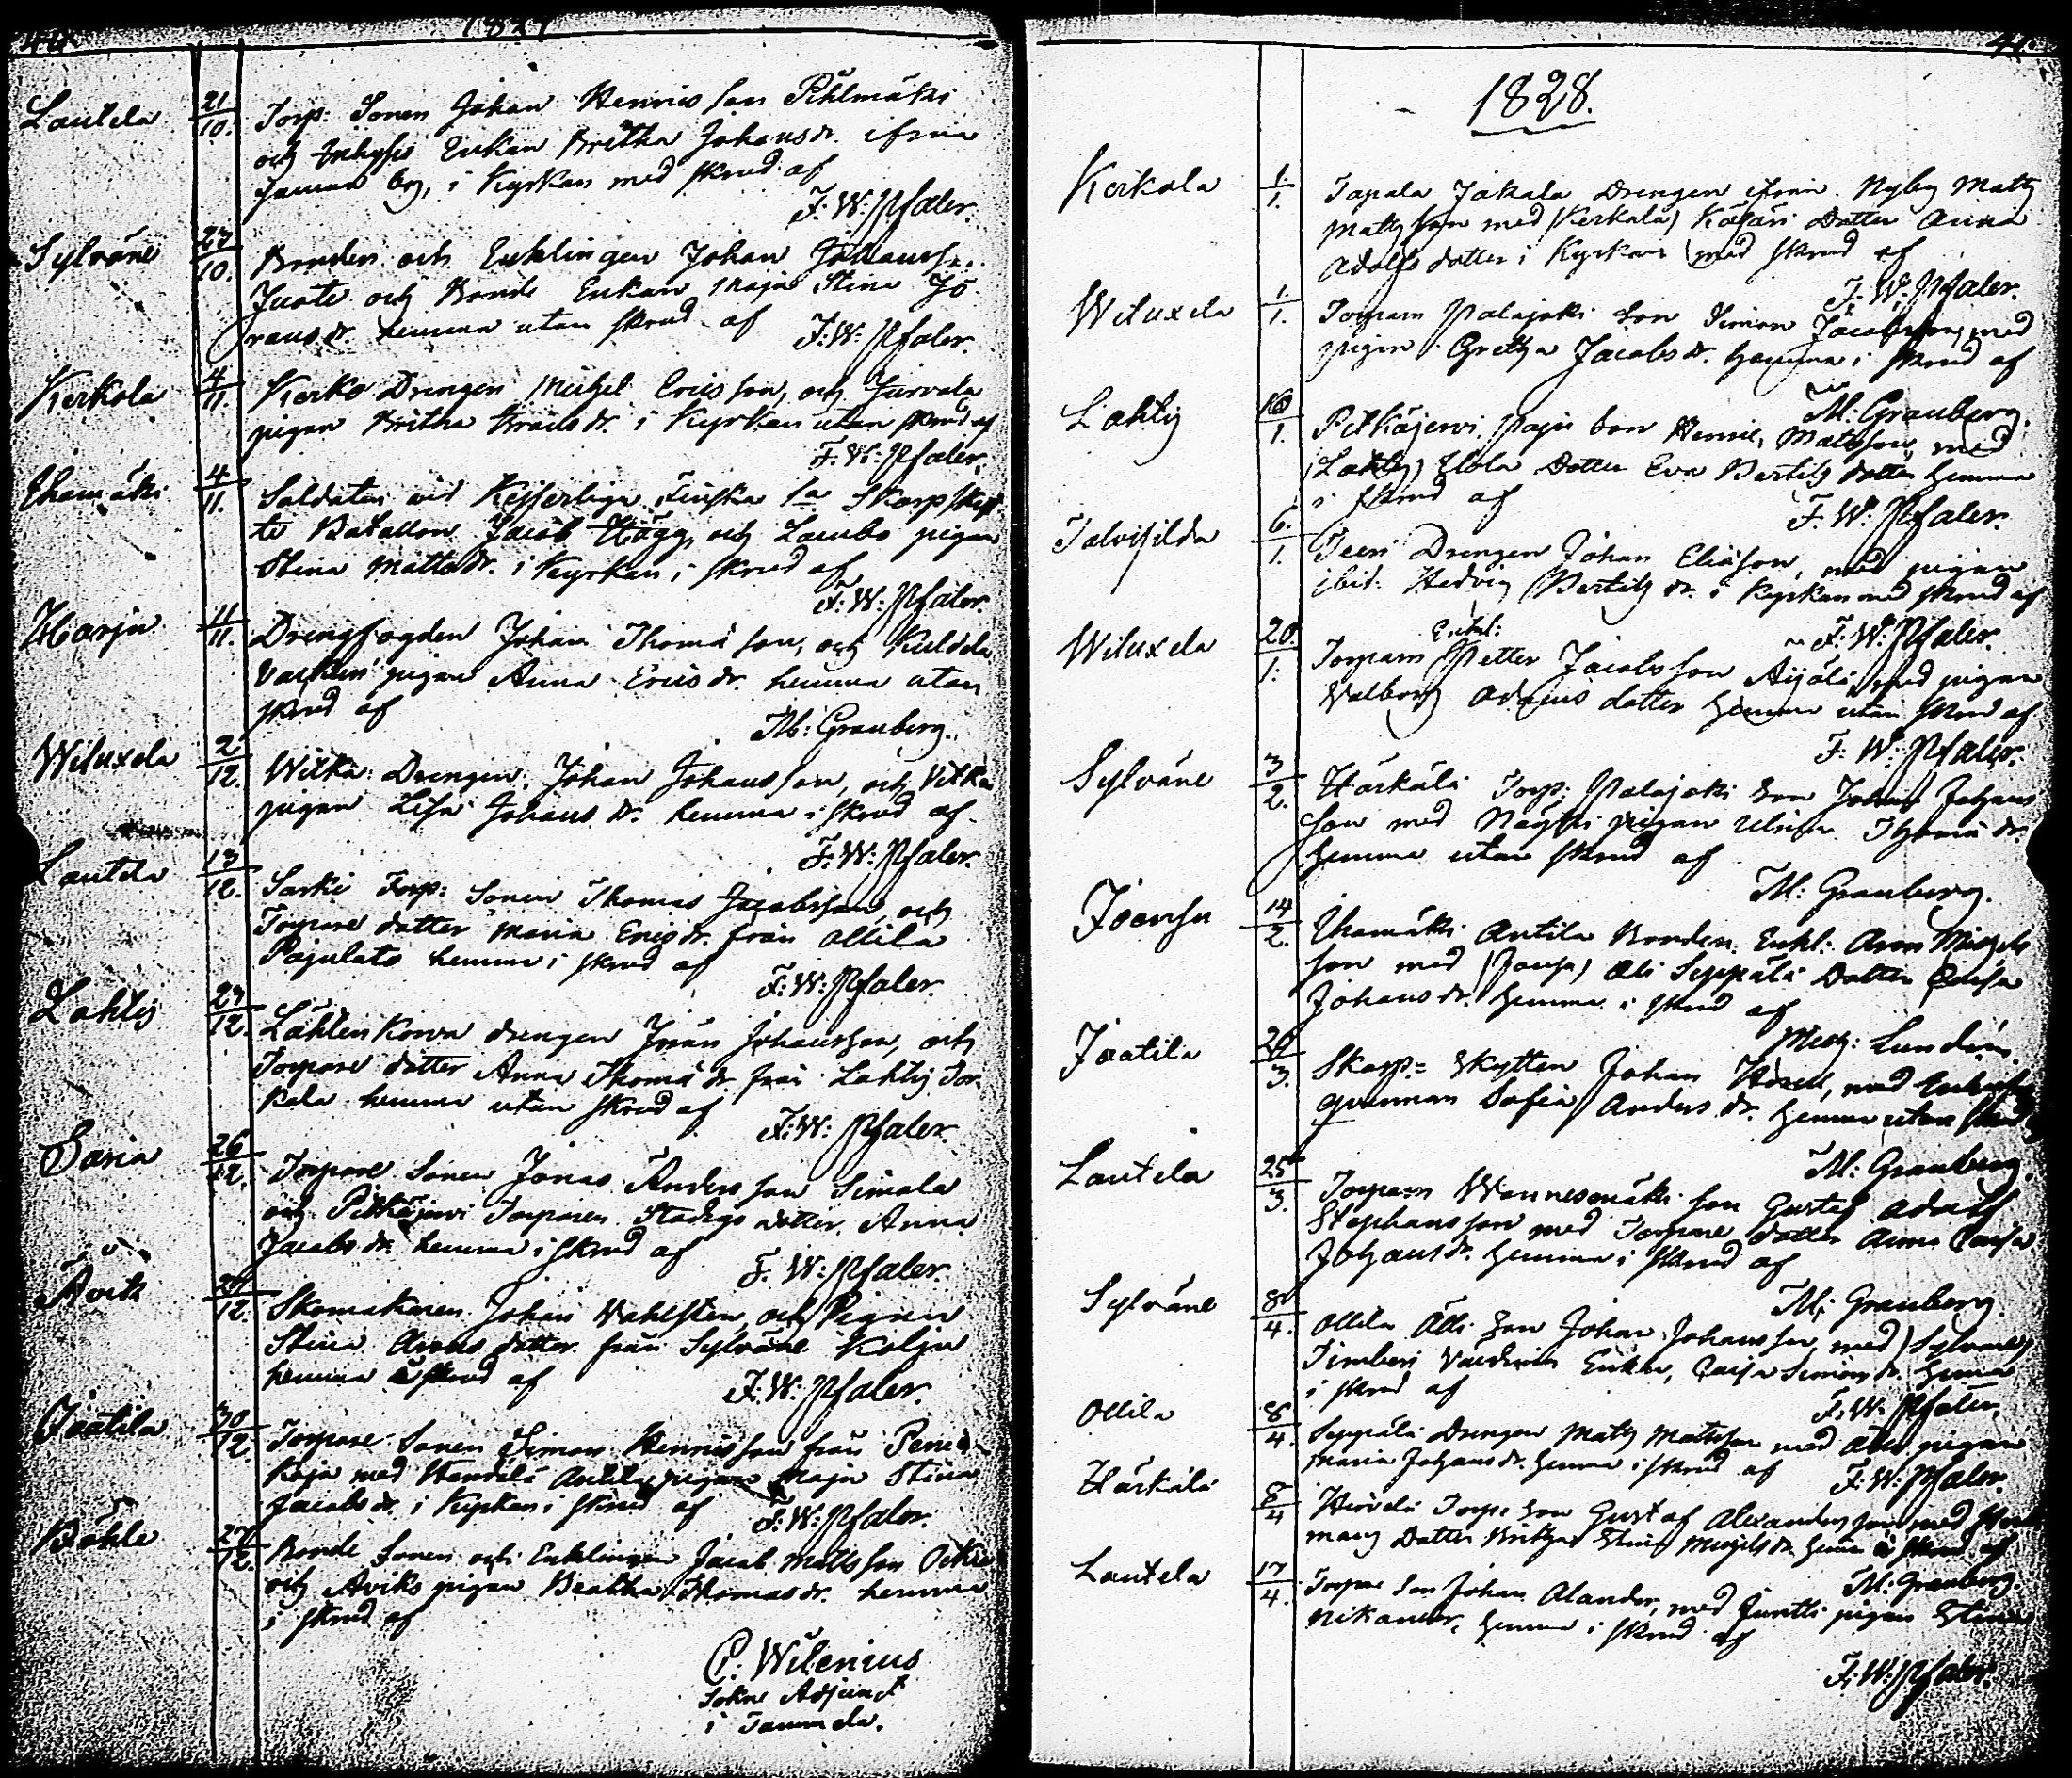 40.
1827
Lautela 21/10. Torp: Sonen Johan Henricsson Pihlmäki
och Enkan Britha Johansdr. ifrån
by, i Kyrkan med skrud af
F: W: Pfaler.
Sylväne 27/10. Bonden och Enklingen Johan Johanss:
och Bonde Enkan Maja Stina Jö-
ransdr. hemma utan skrud af F: W: Pfaler.
Kerkola 4/11. Kerko Drengen Michel Ericsson, och Jurvala
pigan Britha dr. i Kyrkan utan skrud af
F: W: Pfaler.
4/11. Soldaten vid Kejserliga Finska 1a Skarpskyt-
te Batallion Jacob Hägg, och pigan
Stina Mattsdr. i Kyrkan i skrud af
F: W: Pfaler.
Harju 11/11. Drengfogden Johan Thomä son, och
pigan Anna Ericsdr. hemma utan
skrud af
M: Granberg.
Wiluxela 2/12. Wilka Drengen Johan Johansson, och Vilka
pigan Lisa Johansdr. hemma i skrud af
F: W: Pfaler.
Lautela 13/12. Sarki Torp: Sonen Thomas Jacobsson, och
Torpare dotter Maria Ericsdr. från Ollila
Pajulato hemma i skrud af
F: W: Pfaler.
Lahty 27/12. Lähteenkorva drengen Jöran Johansson, och
Torpare dotter Anna Thomä dr. från Lahty Tor-
kala hemma utan skrud af
F: W: Pfaler.
Saria 26/12. Torpare Sonen Jonas Andersson Simola
och Pitkäjervi Torparen Stadigs dotter Anna
Jacobsdr. hemma i skrud af
F: W: Pfaler.
Åvik 29/12. Skomakaren Johan Vahlsten, och Pigan
Stina dotter från Sylväne Kolju
hemma i skrud af
F: W: Pfaler.
Joatila 30/12. Torpare Sonen Simon Henricsson från
med Antila pigan Maja Stina
Jacobsdr. i Kyrkan i skrud af
F: W: Pfaler.
27/12. Bonde Sonen och Enklingen Jacob Mattsson
och Åviks pigan Beatha Thomasdr. hemma
i skrud af
C: Wilenius
Sokne Adjunct
i Tammela.
41.
1828.
Kerkola 1/1. Tapala Jakala Drengen ifrån Nyby Matts
Mattsson med (Kerkala) Dotter Anna
Adolfs dotter i Kyrkan med skrud af
F: W: Pfaler.
Wiluxela 1/1. Torparn Palajoki Son Simon Jacobsson, med
pigan Gretha Jacobsdr. hemma i skrud af
M: Granberg.
Lahty 1. Pitkäjervi Son Henric Mattsson, med
(Lahty) Dotter Eva Bertils dotter hemma
i skrud af
F: W: Pfaler.
Talvisilda 6/1. Drengen Johan Eliäson, med pigan
ibid: Hedvig Bertilsdr. i Kyrkan med skrud af
F: W: Pfaler.
Wiluxela 20/1. Torparn Enkl: Petter Jacobsson Äijälä med pigan
Valborg dotter hemma utan skrud af
F: W: Pfaler.
Sylväne 3/2. Härkälä Torp: Palajoki Son Johans
son med pigan Ulrica Thomä dr.
hemma utan skrud af
M: Granberg.
Joensu 14/2. Antila Bonden Enkl: Aron Michels
son med (Joensu) Seppälä Dotter Caisa
Johansdr. hemma i skrud af
Lundén
Joatila 3. Skarp-Skytten Johan med
qvinnan Sofia Andersdr. hemma utan skrud
M: Granberg
Lautela 25/3. Torparn son Gustaf Adolf
Stephansson med Torpare dotter Anna Caisa
Johansdr. hemma i skrud af
M: Granberg.
Sylväne 8/4. Ollila Son Johan Johansson, med (Sylväne)
Timberi Enkan, Caisa Simonsdr. hemma
i skrud af
F: W: Pfaler.
Ollila 8/4. Seppälä Drengen Matts Mattsson med pigan
Maria Johansdr. hemma i skrud af F: W: Pfaler.
Härkälä 8/4 Torp: son Gustaf Alexandersson med
Dotter Britha Stina Michelsdr. hemma i skrud af
M: Granberg.
Lautela 17/4. Torpare Son Johan Alander, med Juntti pigan Stina
Nikander, hemma i skrud af
F: W: Pfaler.